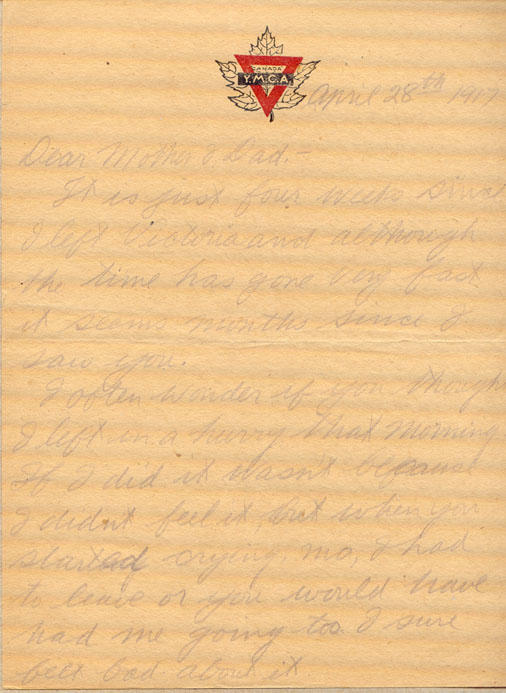 CANADA
Y.M.C.A.
April 28th 1917
Dear Mother & Dad.—
It is just four weeks since
I left Victoria and although
the time has gone very fast
it seams months since I
saw you.
I often wonder if you though
I left in a hurry that morning
If I did it wasn't because
I didn't feel it, but when you
started crying, mo, I had
to leave or you would have
had me going too. I sure
felt bad about it